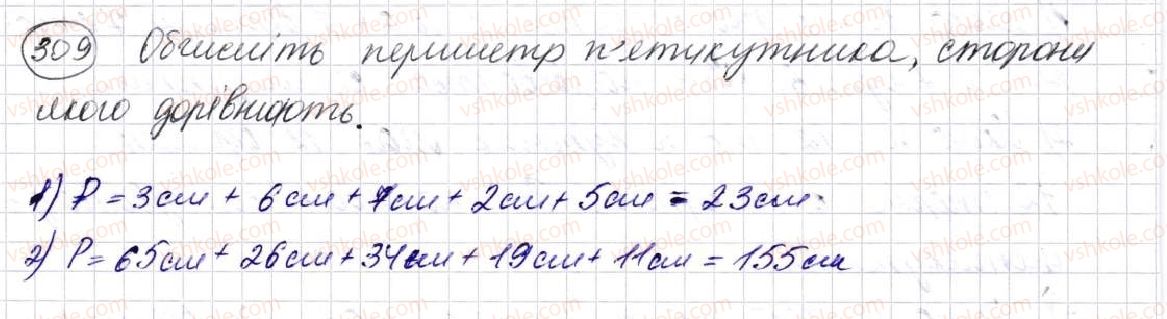 309 Обчисліть периметр п'ятикутника, сторони
якого дорівнюють.
1) P = 3см + 6см + 7см + 2см + 5см = 23см.
2) P = 65см + 26см + 34см + 19см + 11см = 155см